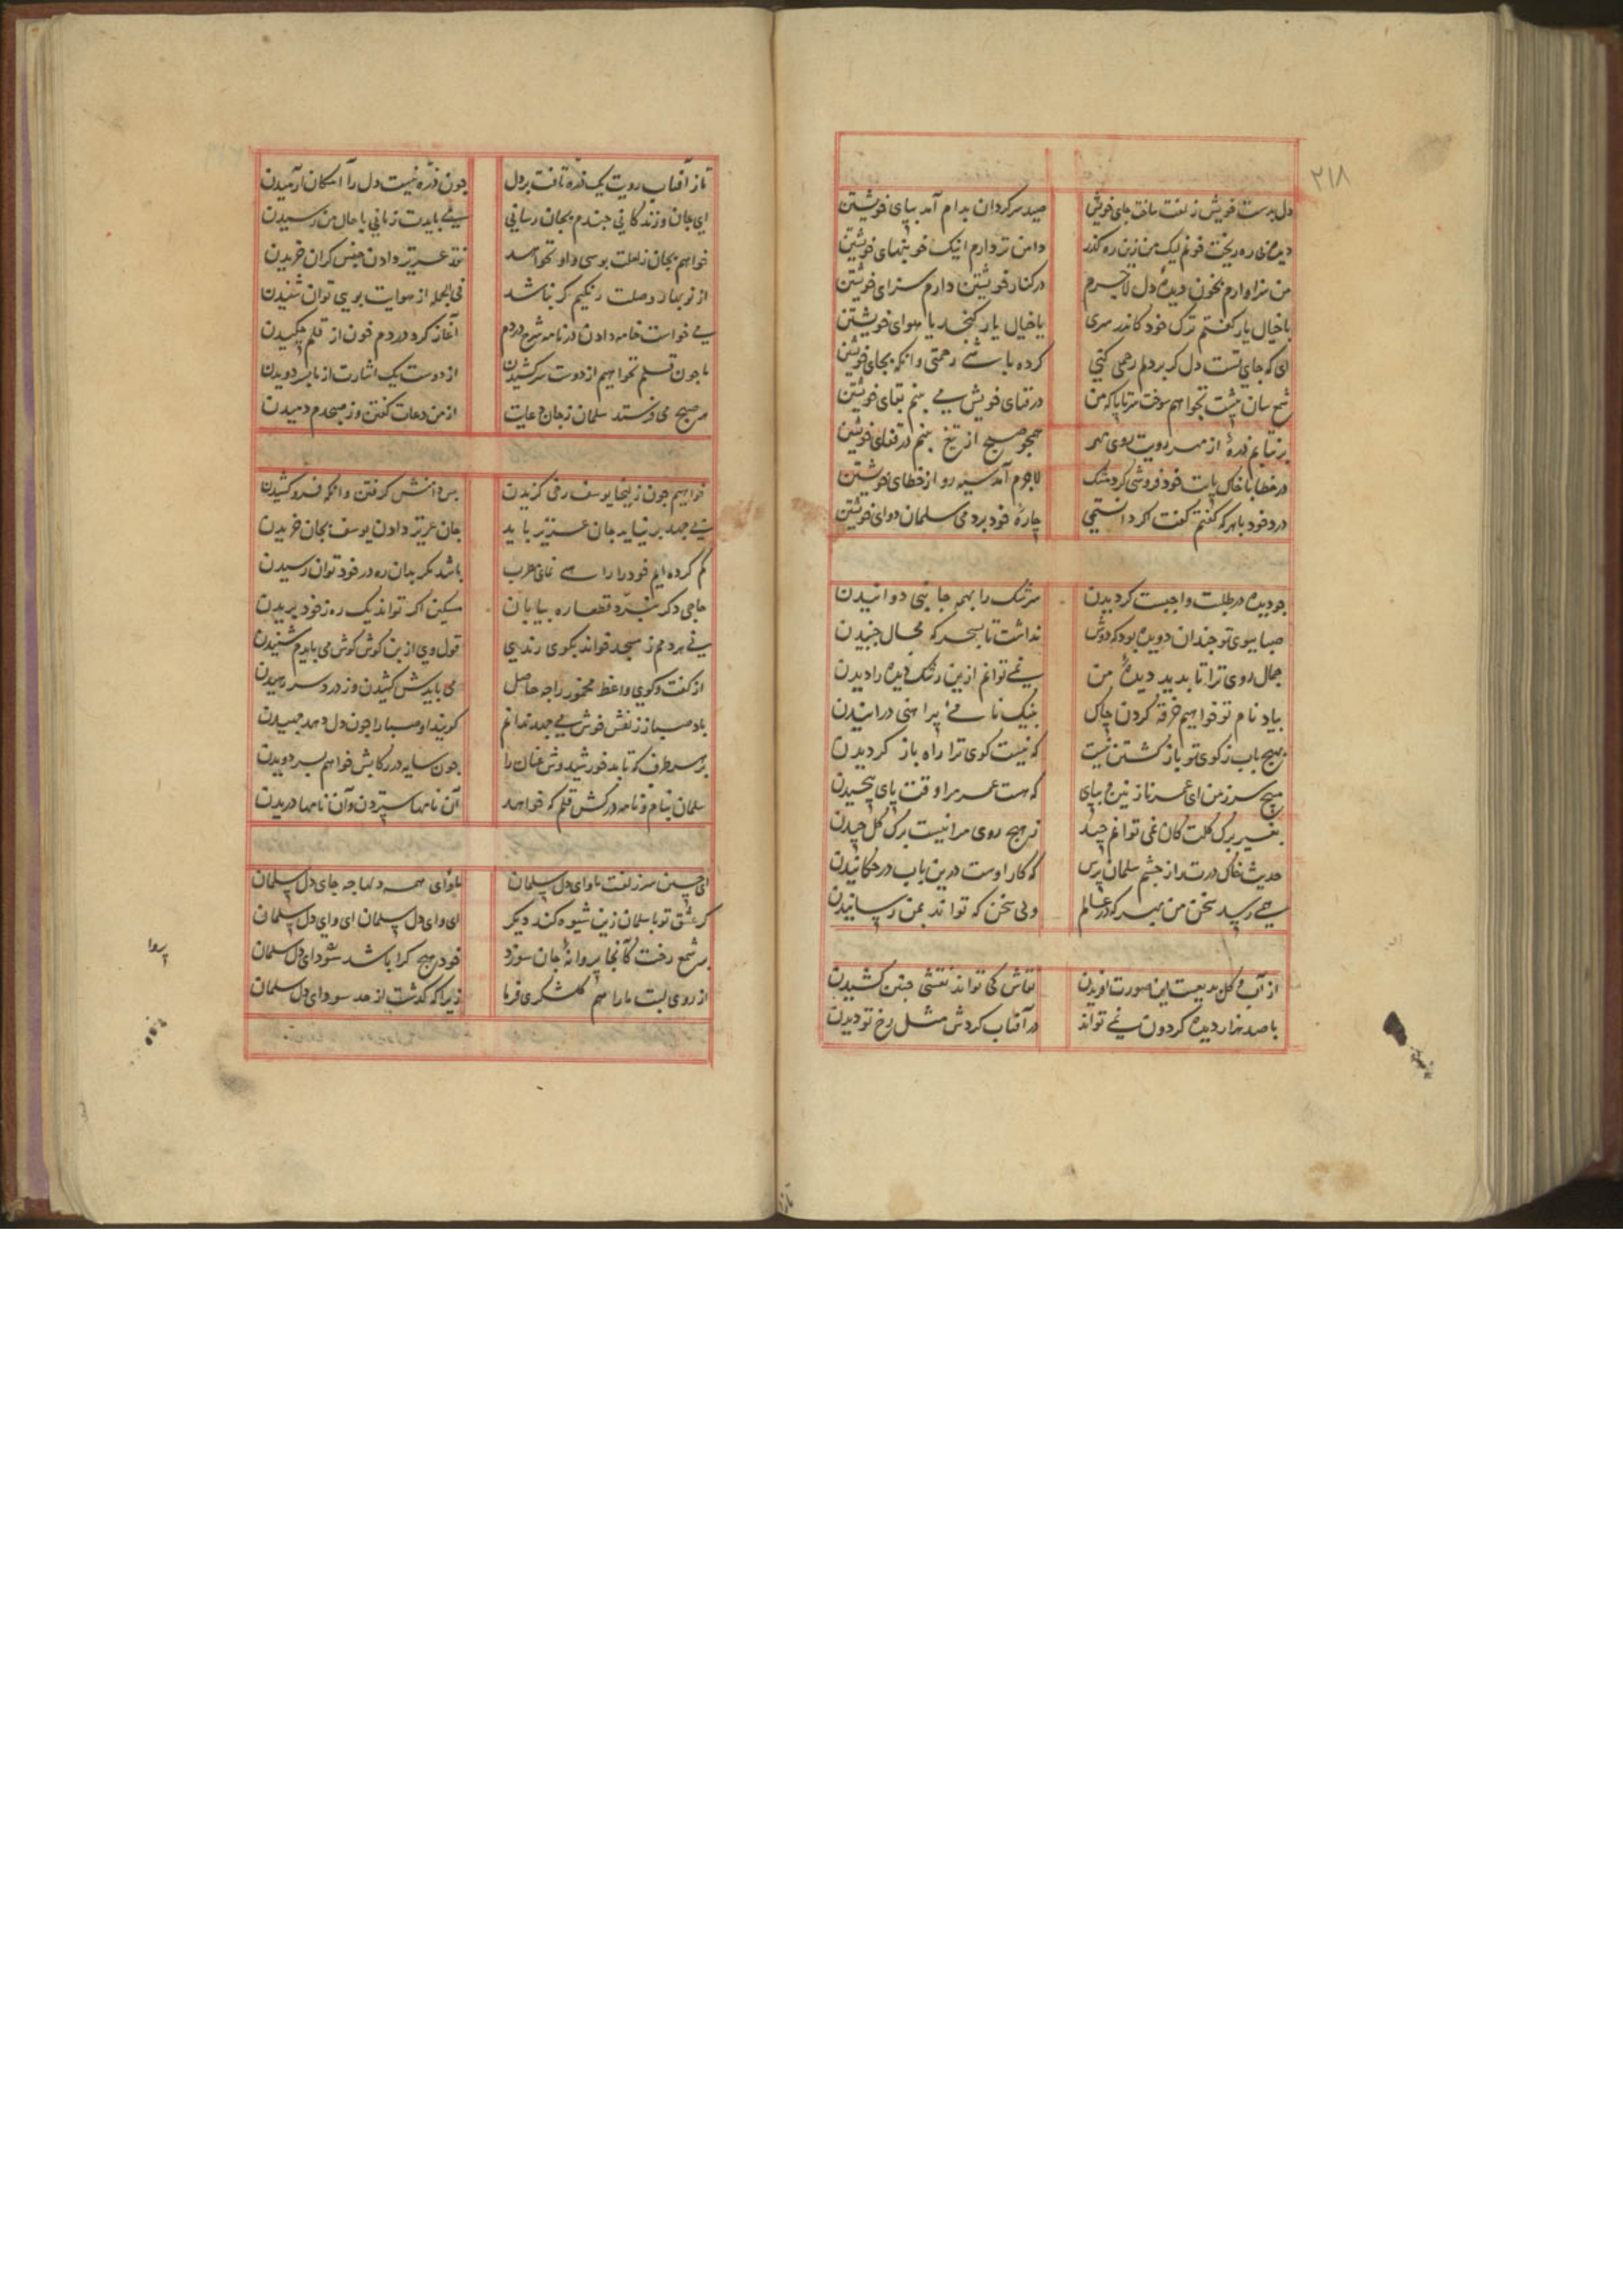 ۲۱۸
دل بدست خویش زلفت ساخت جای خویش صید سرکردان بدام آمد بپای خویشتن
دیده‌ئی ره ریخت خونم لیک من زین ره کذر دامن تر دارم اینک خونبهای خویشتن
من سزاوارم بخون دیده دل لاجرم درکنار خویشتن دارم سزای خویشتن
باخیال یار کفتم ترک خود کاندر سری یاخیال یار کنجد یا هوای خویشتن
ای که جای تست دل کر بر دلم رحمی کنی کرده باشی رحمتی وانکه بجای خویشتن
شمع سان پیشت بخواهم سوخت سرتاپا که من در فنای خویش می بینم بقای خویشتن
برنتابم ذرهٔ از مهر رویت روی مهر همچو صبح از تیغ بینم در قفای خویشتن
در خطا با خاک پایت خود فروشی کرد مشک لاجرم آمد سیه رو از خطای خویشتن
درد خود باهر که کفتم کفت اکر دانستمی چارهٔ خود بردمی سلمان دوای خویشتن
جو دیده در طلبت واجبست کردیدن سرشک را بهمه جانبی دوانیدن
صبا ببوی تو جندان دویده بود که دوش نداشت تا بسحر که مجال جنبیدن
جمال روی ترا تا بدید دیدهٔ من نمی توانم ازین رشک دیده را دیدن
بیاد نام تو خواهیم خرقه کردن چاک بنیک نامی پیراهنی درانیدن
بهیچ باب ز کوی تو باز کشتن نیست که نیست کوی ترا راه باز کردیدن
مپیچ سر ز من ای عمر نازنین و بپای که هست عمر مرا وقت پای پیچیدن
بغیر برک کلت کان نمی توانم چید ز هیچ روی مرا نیست برک کل چیدن
حدیث خاک درت را ز چشم سلمان پرس که کار اوست درین باب در چکانیدن
همی رسد سخن من بهر که در عالم ولی سخن که تواند بمن رسانیدن
از آب و کل بدیعست این صورت آفریدن نقاش کی تواند نقشی چنین کشیدن
باصد هزار دیده کردون نمی تواند در آفتاب کردش مثل رخ تو دیدن
تا ز آفتاب رویت یک ذره تافت بر دل جون ذره نیست دل را امکان آرمیدن
ای جان و زندکانی جندم بجان رسانی می بایدت زمانی با حال من رسیدن
خواهم بجان ز لعلت بوسی و او نخواهد نقد عزیز دادن جنس کران خریدن
از نوبهار وصلت رنکیم کر نباشد فی الجمله از هوایت بویی توان شنیدن
می خواست خامه دادن در نامه شرح دردم آغاز کرد در دم خون از قلم چکیدن
ما جون قلم نخواهیم از دوست سر کشیدن از دوست یک اشارت از ما بسر دویدن
هر صبح می فرستد سلمان ز جان دعایت از من دعات کفتن وز صبحدم دمیدن
خواهیم جون زلیخا یوسف رخی کزیدن پس دامنش کرفتن وانکه فرو کشیدن
بی جهد برنیاید جان عزیز باید جان عزیز دادن یوسف بجان خریدن
کم کرده ایم خود را راهی نمای مطرب باشد مکر بدان ره در خود توان رسیدن
حاجی دکر نبرد قطعا ره بیابان مسکین اکر تواند یک ره ز خود بریدن
نی هردمم ز مسجد خواند بکوی رندی قول وی از بن کوش می بایدم شنیدن
از کفت و کوی واعظ مخمور را چه حاصل می بایدش کشیدن وز درد سر رهیدن
باد صبا ز نقش خوش می جهد ندانم کویند او صبا را جون دل دهد جهیدن
بر هر طرف که تابد خورشیدوش عنان را جون سایه در رکابش خواهم بسر دویدن
سلمان بنام و نامه درکش قلم که خواهد آن نامها ستردن وآن نامها دریدن
ای چین سر زلفت ماوای دل سلمان ماوای همه دلها چه جای دل سلمان
کر عشق تو با سلمان زین شیوه کند دیکر ای وای دل سلمان ای وای دل سلمان
بر شمع رخت کآنجا پروانهٔ جان سوزد خود هیچ کرا باشد پروای دل سلمان
از روی لبت ما را هم کلشکری فرما زیرا که کذشت از حد سودای دل سلمان
پروا